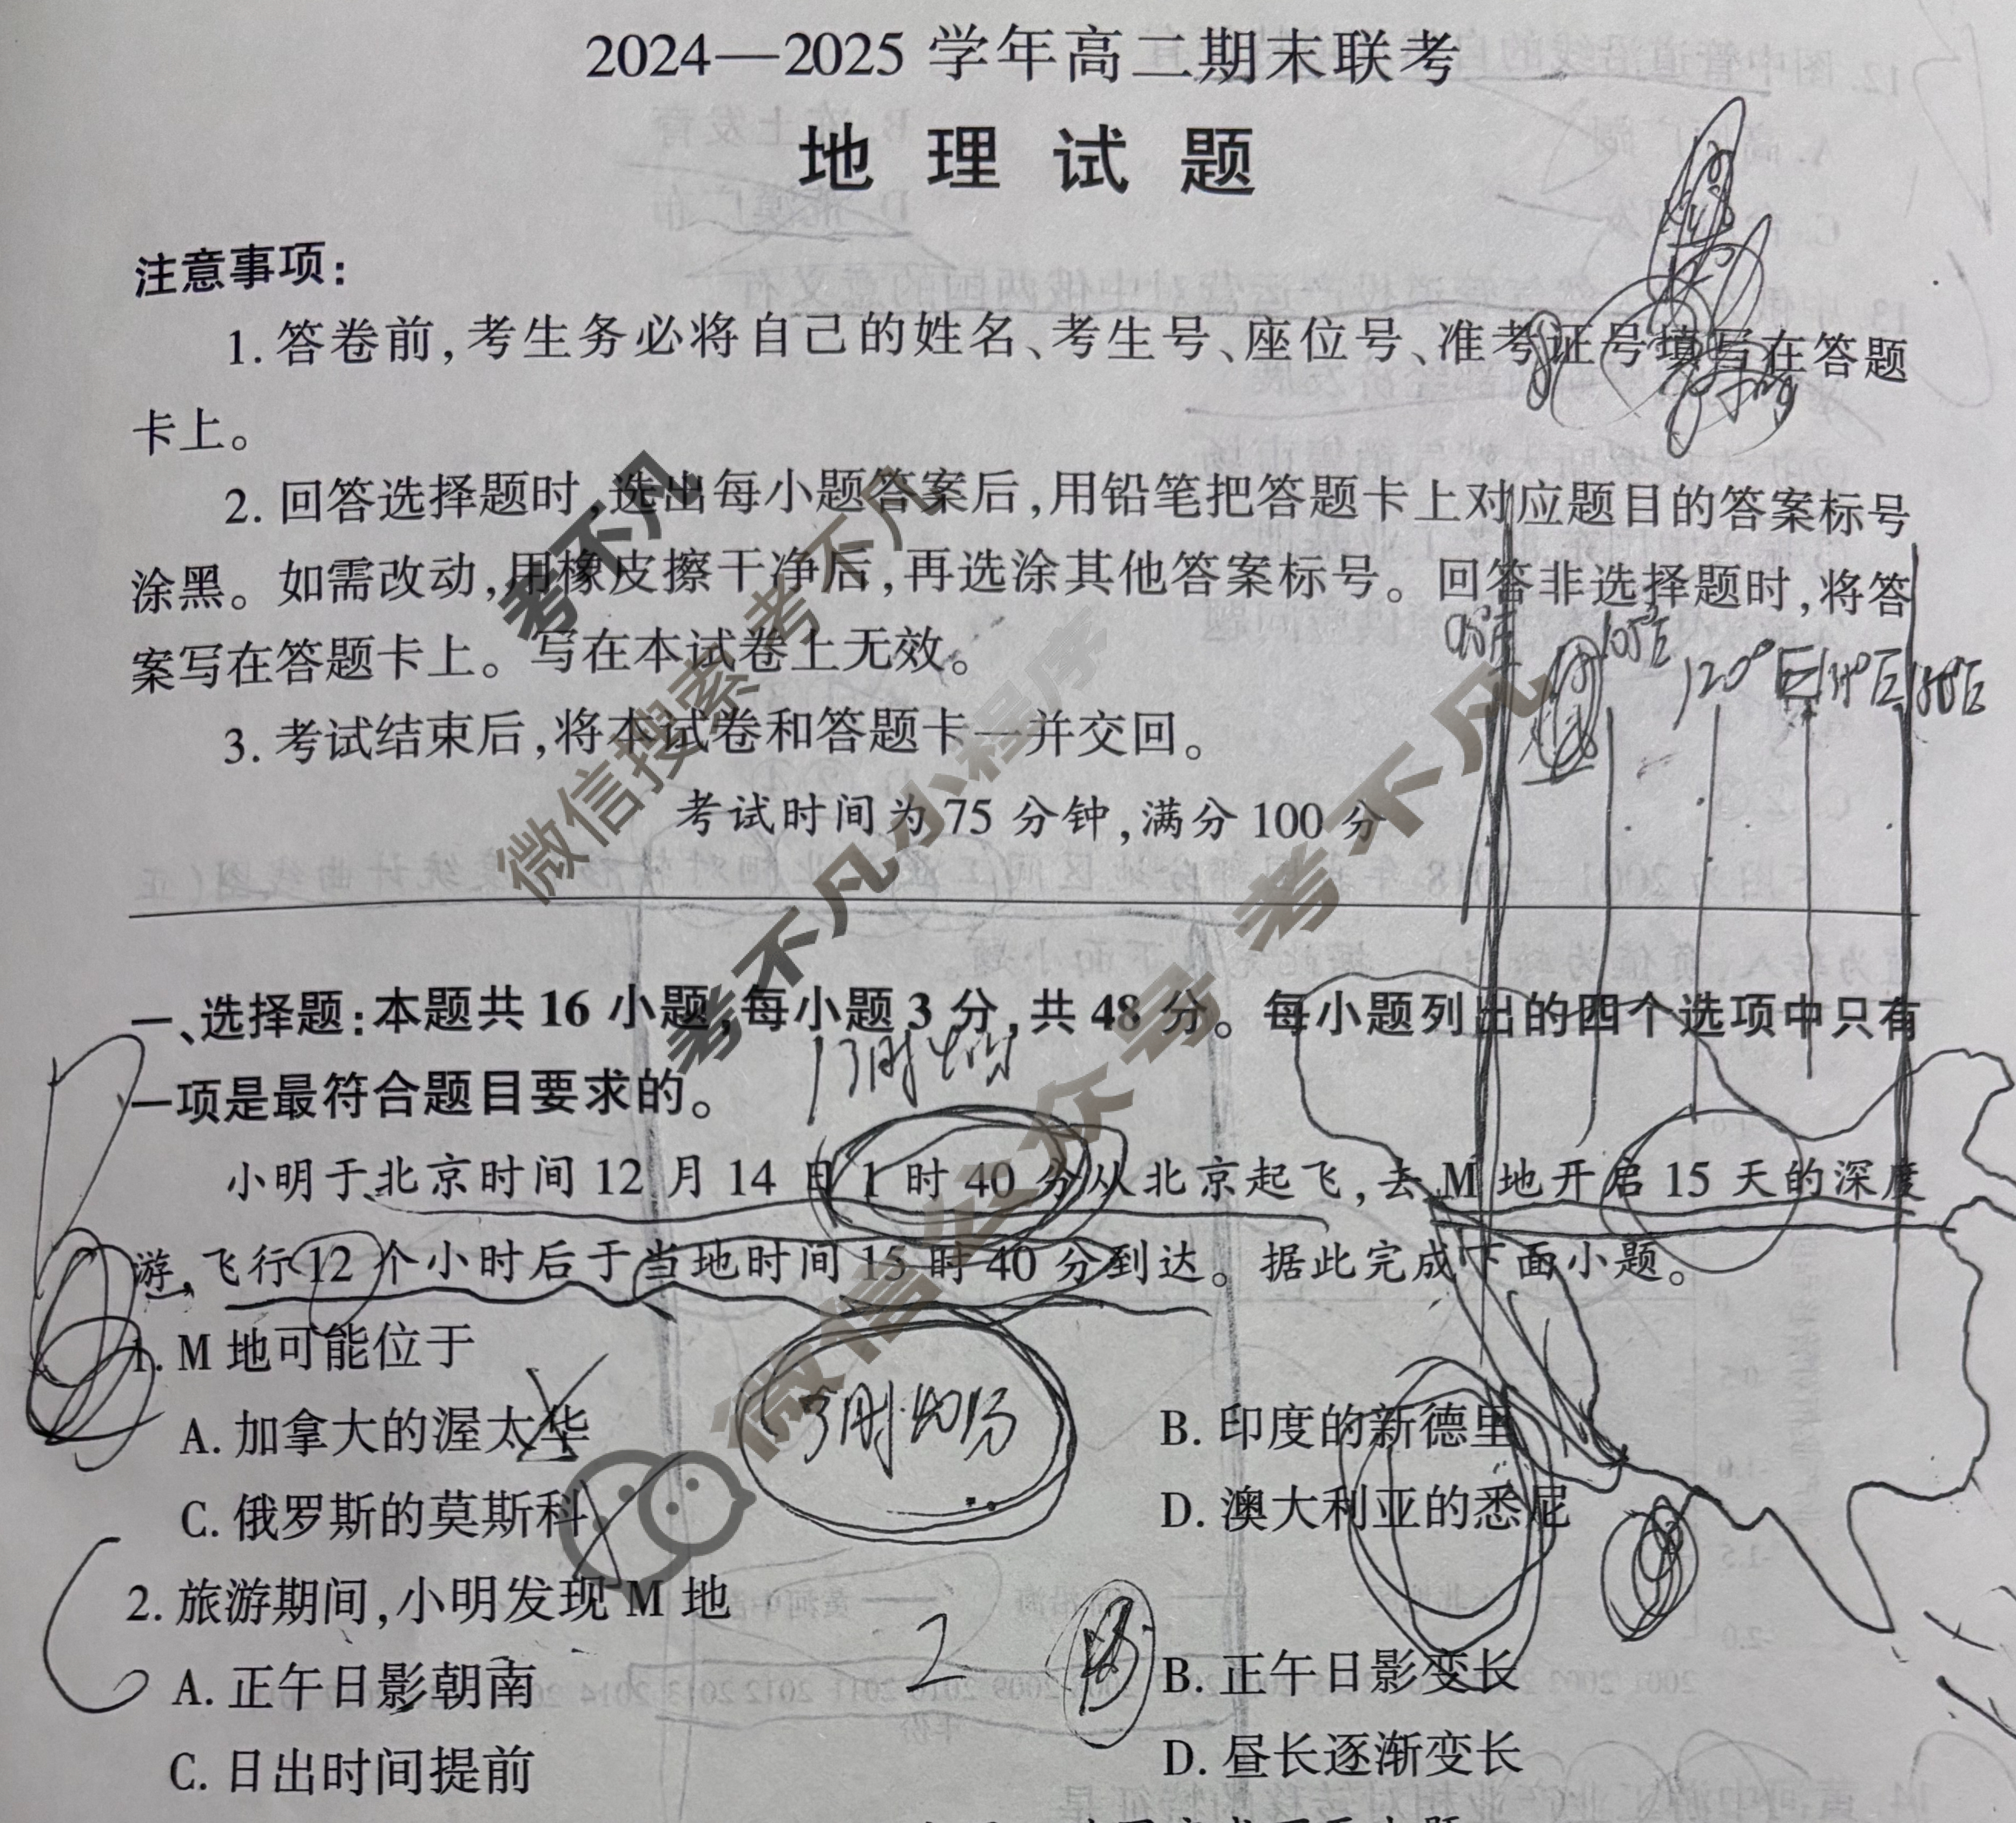 2024—2025 学年高二期末联考
地理试题
注意事项：
1. 答卷前，考生务必将自己的姓名、考生号、座位号、准考证号填写在答题
卡上。
2. 回答选择题时，选出每小题答案后，用铅笔把答题卡上对应题目的答案标号
涂黑。如需改动，用橡皮擦干净后，再选涂其他答案标号。回答非选择题时，将答
案写在答题卡上。写在本试卷上无效。
105°E
120°E
3. 考试结束后，将本试卷和答题卡一并交回。
考试时间为 75 分钟，满分 100 分
一、选择题：本题共 16 小题，每小题 3 分，共 48 分。每小题列出的四个选项中只有
一项是最符合题目要求的。
13时40分
小明于北京时间 12 月 14 日 1 时 40 分从北京起飞，去 M 地开启 15 天的深度
游，飞行 12 个小时后于当地时间 15 时 40 分到达。据此完成下面小题。
1. M 地可能位于
A. 加拿大的渥太华
B. 印度的新德里
3时40分
C. 俄罗斯的莫斯科
D. 澳大利亚的悉尼
2. 旅游期间，小明发现 M 地
2
A. 正午日影朝南
B. 正午日影变长
C. 日出时间提前
D. 昼长逐渐变长
考不凡
考不凡
微信搜索
考不凡小程序
微信公众号 考不凡